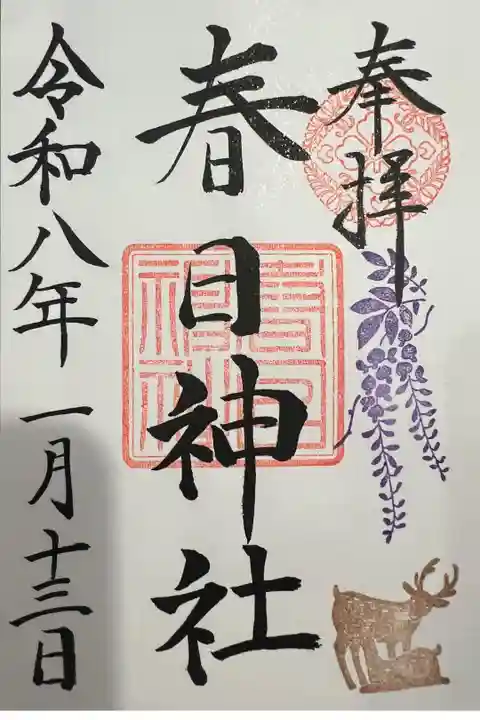 奉拝
春日神社
令和八年一月十三日